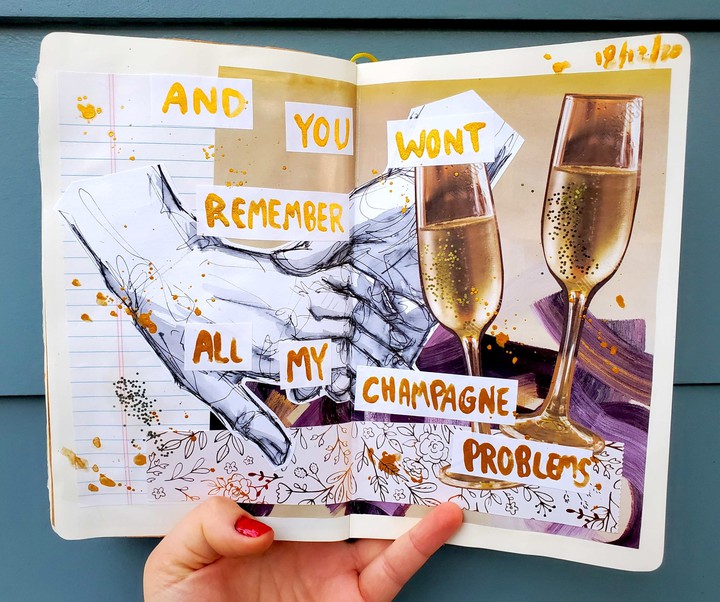 18/12/20
AND YOU WONT
REMEMBER
ALL MY CHAMPAGNE
PROBLEMS